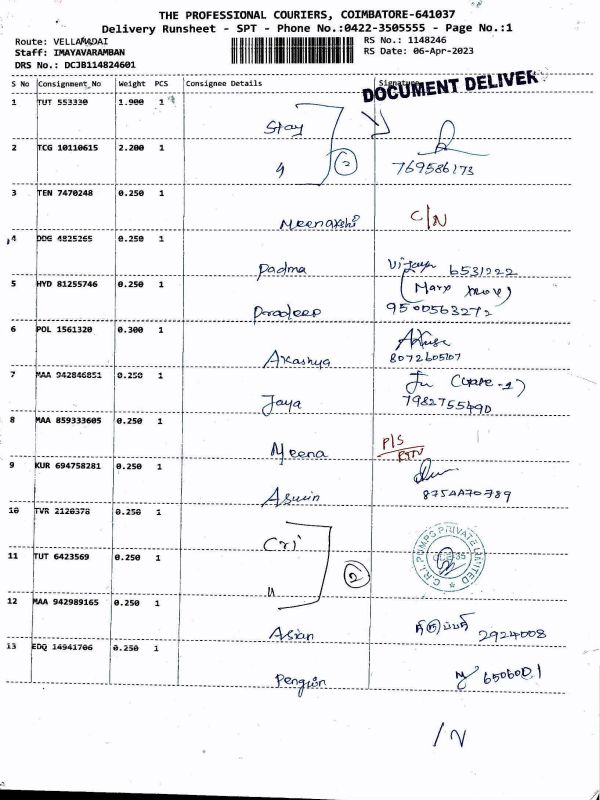 THE PROFESSIONAL COURIERS, COIMBATORE-641037
Delivery Runsheet - SPT - Phone No.:0422-3505555 - Page No.:1
Route: VELLAMADAI
RS No.: 1148246
Staff: IMAYAVARAMBAN
RS Date: 06-Apr-2023
DRS No.: DCJB114824601
S No Consignment_No Weight PCS Consignee Details Signature
DOCUMENT DELIVER
1 TUT 553330 1.900 1
Stay
2 TCG 10110615 2.200 1
" 2
769586173
3 TEN 7470248 0.250 1
Meenakshi C/N
4 DDG 4825265 0.250 1
Padma Vijaya 6531222
5 HYD 81255746 0.250 1
(Marx
Pradeep 9500563272
6 POL 1561320 0.300 1
Akashya 8072605107
7 MAA 942846851 0.250 1
Jaya 7982755490
8 MAA 859333605 0.250 1
Meena P/S
RTN
9 KUR 694758281 0.250 1
Aswin
10 TVR 2120378 0.250 1
Cri
C.R.I. PUMPS PRIVATE LIMITED
11 TUT 6423569 0.250 1
" 2
12 MAA 942989165 0.250 1
Asian 2924008
13 EDQ 14941706 0.250 1
Penguin 650600 1
/N